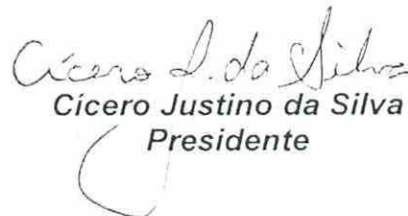 Cícero J. da Silva
Cícero Justino da Silva
Presidente